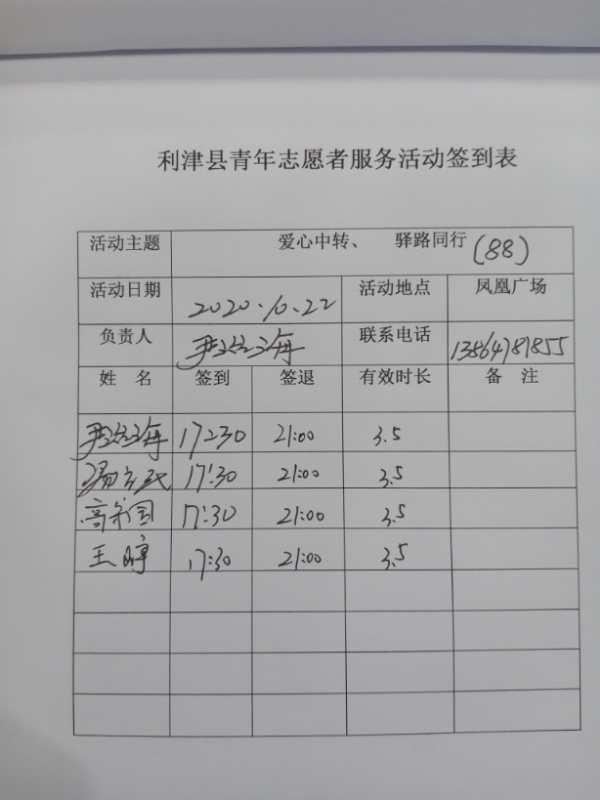 利津县青年志愿者服务活动签到表
活动主题 爱心中转、 驿路同行 (88)
活动日期 2020.10.22 活动地点 凤凰广场
负责人 尹 海 联系电话 13864781855
姓 名 签到 签退 有效时长 备 注
尹 海 17:30 21:00 3.5
17:30 21:00 3.5
高 国 17:30 21:00 3.5
王婷 17:30 21:00 3.5